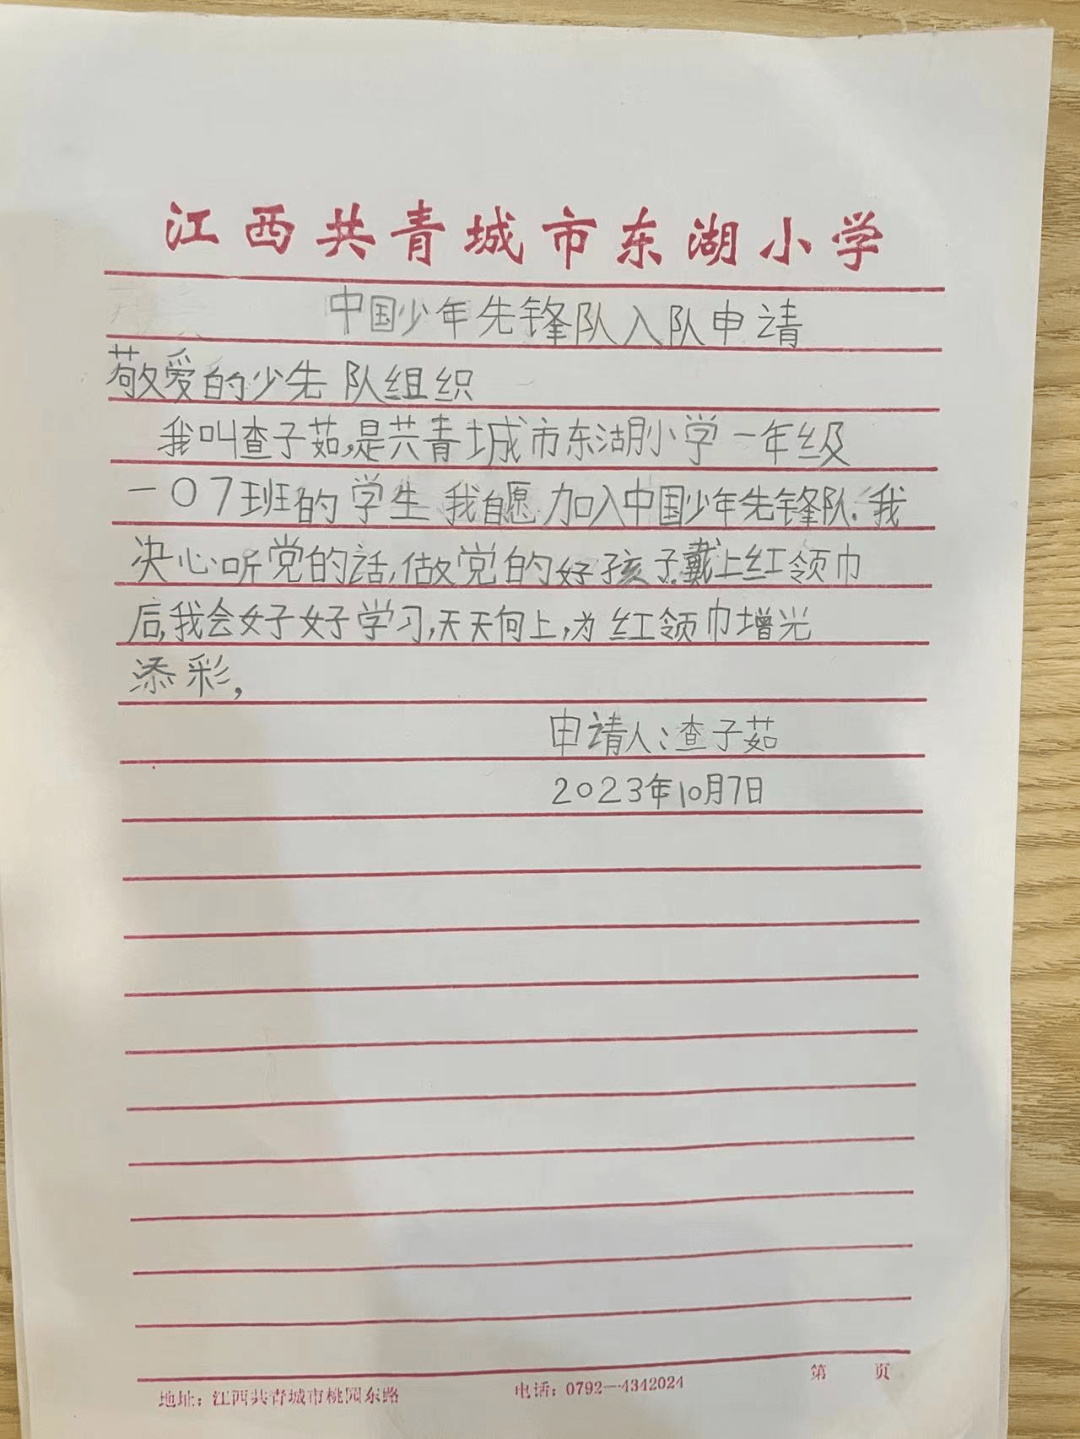 江西共青城市东湖小学
中国少年先锋队入队申请
敬爱的少先队组织
我叫查子茹,是共青城市东湖小学一年级
一07班的学生 我自愿加入中国少年先锋队.我
决心听党的话,做党的好孩子.戴上红领巾
后,我会好好学习,天天向上,为红领巾增光
添彩,
申请人:查子茹
2023年10月7日
第 页
地址:江西共青城市桃园东路 电话:0792—4342024